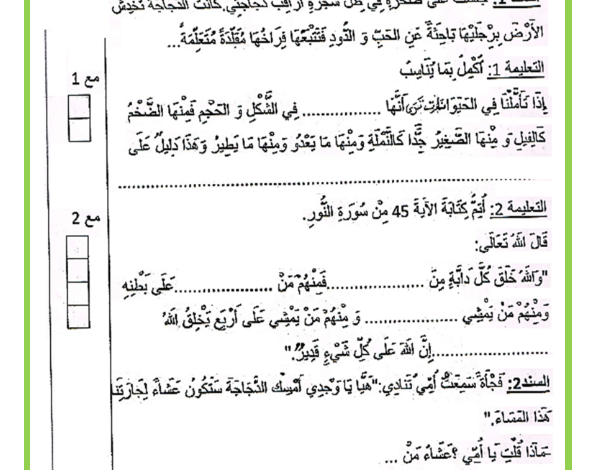 السند 1: جلست على صخرة في ظل شجرة أراقب دجاجتي، كانت الدجاجة تخدش
الأَرْضَ بِرِجْلَيْهَا بَاحِثَةً عَنِ الحَبِّ وَ الدُّودِ فَتَتْبَعُهَا فِرَاخُهَا مُقَلِّدَةً مُتَعَلِّمَةً...
التعليمة 1: أُكْمِلُ بِمَا يُنَاسِبُ
مع 1
إِذَا تَأَمَّلْنَا فِي الحَيَوَانَاتِ نَرَى أَنَّهَا ................ فِي الشَّكْلِ وَ الحَجْمِ فَمِنْهَا الضَّخْمُ
كَالفِيلِ وَ مِنْهَا الصَّغِيرُ جِدًّا كَالنَّمْلَةِ وَمِنْهَا مَا يَعْدُو وَمِنْهَا مَا يَطِيرُ وَهَذَا دَلِيلٌ عَلَى
................................................
التعليمة 2: أُتِمُّ كِتَابَةَ الآيَةَ 45 مِنْ سُورَةِ النُّورِ.
مع 2
قَالَ اللهُ تَعَالَى:
"وَاللهُ خَلَقَ كُلَّ دَابَّةٍ مِنَ ....................فَمِنْهُمْ مَنْ ....................عَلَى بَطْنِهِ
وَمِنْهُمْ مَنْ يَمْشِي .................... وَ مِنْهُمْ مَنْ يَمْشِي عَلَى أَرْبَعٍ يَخْلِقُ اللهُ
........................إِنَّ اللهَ عَلَى كُلِّ شَيْءٍ قَدِيرٌ."
السند2: فَجْأَةً سَمِعْتُ أُمِّي تُنَادِي:"هَيَّا يَا وَجْدِي أَمْسِك الدَّجَاجَةَ سَتَكُونُ عَشَاءً لِجَارَتِنَا
هَذَا المَسَاءَ."
-مَاذَا قُلْتِ يَا أُمِّي ؟عَشَاءُ مَنْ ...